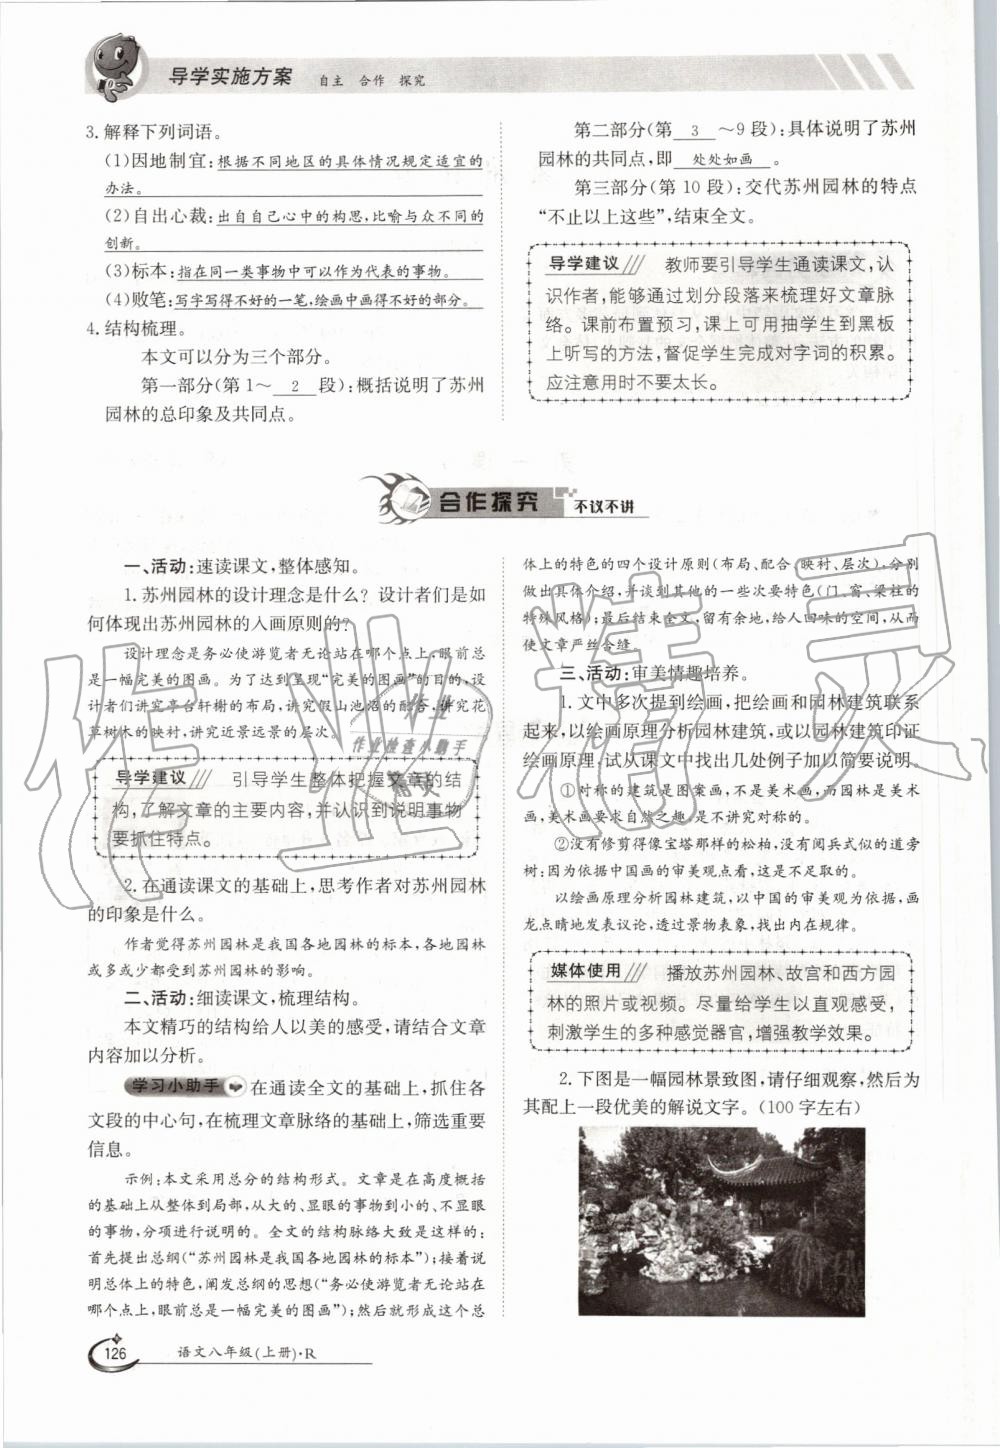 导学实施方案 自主 合作 探究
3.解释下列词语。
(1)因地制宜:根据不同地区的具体情况规定适宜的
办法。
(2)自出心裁:出自自己心中的构思,比喻与众不同的
创新。
(3)标本:指在同一类事物中可以作为代表的事物。
(4)败笔:写字写得不好的一笔,绘画中画得不好的部分。
4.结构梳理。
本文可以分为三个部分。
第一部分(第1～ 2 段):概括说明了苏州
园林的总印象及共同点。
第二部分(第 3 ～9段):具体说明了苏州
园林的共同点,即 处处如画 。
第三部分(第10段):交代苏州园林的特点
“不止以上这些”,结束全文。
导学建议 教师要引导学生通读课文,认
识作者,能够通过划分段落来梳理好文章脉
络。课前布置预习,课上可用抽学生到黑板
上听写的方法,督促学生完成对字词的积累。
应注意用时不要太长。
合作探究 不议不讲
一、活动:速读课文,整体感知。
1.苏州园林的设计理念是什么?设计者们是如
何体现出苏州园林的入画原则的?
设计理念是务必使游览者无论站在哪个点上,眼前总
是一幅完美的图画。为了达到呈现“完美的图画”的目的,设
计者们讲究亭台轩榭的布局,讲究假山池沼的配合,讲究花
草树木的映衬,讲究近景远景的层次。
导学建议 引导学生整体把握文章的结
构,了解文章的主要内容,并认识到说明事物
要抓住特点。
2.在通读课文的基础上,思考作者对苏州园林
的印象是什么。
作者觉得苏州园林是我国各地园林的标本,各地园林
或多或少都受到苏州园林的影响。
二、活动:细读课文,梳理结构。
本文精巧的结构给人以美的感受,请结合文章
内容加以分析。
学习小助手 在通读全文的基础上,抓住各
文段的中心句,在梳理文章脉络的基础上,筛选重要
信息。
示例:本文采用总分的结构形式。文章是在高度概括
的基础上从整体到局部,从大的、显眼的事物到小的、不显眼
的事物,分项进行说明的。全文的结构脉络大致是这样的:
首先提出总纲(“苏州园林是我国各地园林的标本”);接着说
明总体上的特色,阐发总纲的思想(“务必使游览者无论站在
哪个点上,眼前总是一幅完美的图画”);然后就形成这个总
体上的特色的四个设计原则(布局、配合、映衬、层次),分别
做出具体介绍,并谈到其他的一些次要特色(门、窗、梁柱的
特殊风格);最后结束全文,留有余地,给人回味的空间,从而
使文章严丝合缝。
三、活动:审美情趣培养。
1.文中多次提到绘画,把绘画和园林建筑联系
起来,以绘画原理分析园林建筑,或以园林建筑印证
绘画原理,试从课文中找出几处例子加以简要说明。
①对称的建筑是图案画,不是美术画,而园林是美术
画,美术画要求自然之趣,是不讲究对称的。
②没有修剪得像宝塔那样的松柏,没有阅兵式似的道旁
树:因为依据中国画的审美观点看,这是不足取的。
以绘画原理分析园林建筑,以中国的审美观为依据,画
龙点睛地发表议论,透过景物表象,找出内在规律。
媒体使用 播放苏州园林、故宫和西方园
林的照片或视频。尽量给学生以直观感受,
刺激学生的多种感觉器官,增强教学效果。
2.下图是一幅园林景致图,请仔细观察,然后为
其配上一段优美的解说文字。(100字左右)
126 语文八年级(上册)·R
作业精灵
作业
作业检查小助手
精灵